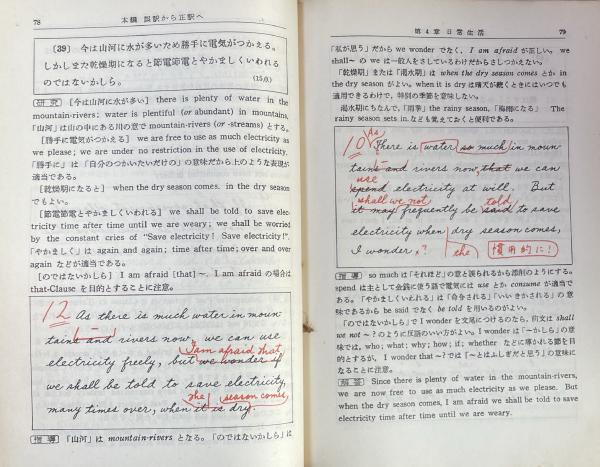 78 本欄 誤訳から正訳へ
[39] 今は山河に水が多いため勝手に電気がつかえる。
しかしまた乾燥期になると節電節電とやかましくいわれる
のではないかしら。 (15点)
[研究] [今は山河に水が多い] there is plenty of water in the
mountain-rivers; water is plentiful (or abundant) in mountains,
「山河」は山の中にある川の意で mountain-rivers (or -streams) とする。
[勝手に電気がつかえる] we are free to use as much electricity as
we please; we are under no restriction in the use of electricity.
「勝手に」は「自分のつかいたいだけの」の意味だから上のような表現が
適当である。
[乾燥期になると] when the dry season comes. in the dry season
でもよい。
[節電節電とやかましくいわれる] we shall be told to save elec-
tricity time after time until we are weary; we shall be worried
by the constant cries of "Save electricity! Save electricity!".
「やかましく」は again and again; time after time; over and over
again などが適当である。
[のではないかしら] I am afraid [that] ~. I am afraid の場合は
that-Clause を目的とすることに注意。
12 As there is much water in moun-
tains and rivers now, we can use
I am afraid that
electricity freely, but we wonder if
we shall be told to save electricity,
the season comes,
many times over, when it is dry.
[指導] 「山河」は mountain-rivers となる。「のではないかしら」は
第4章 日常生活 79
「私が思う」だから we wonder でなく、I am afraid が正しい。we
shall~ の we は一般人をさしているわけだからさしつかえない。
「乾燥期」または「渇水期」は when the dry season comes とか in
the dry season がよい。when it is dry は晴天が続くときにはいつでも
適用できるわけで、特別の季節を意味しない。
渇水期にちなんで、「雨季」 the rainy season,「梅雨になる」 The
rainy season sets in. なども覚えておくと便利である。
10 As
There is water so much in moun-
tains and rivers now, that we can
use
spend electricity at will. But
shall we not told
it may frequently be said to save
electricity when dry season comes,
I wonder.? the 慣用的に!
[指導] so much は「それほど」の意と誤られるから添削のようにする。
spend は主として金銭に使う語で電気には use とか consume が適当で
ある。「やかましくいわれる」は「命をされる」「いいきかされる」の意
味であるから be said でなく be told を用いるのがよい。
「のではないかしら」で I wonder を文尾につけるのなら、前文は shall
we not ~? のように反語のいい方がよい。I wonder は「~かしら」の意
味では、who; what; why; how; if; whether などに導かれる節を目
的とするが、I wonder that ~? では「~とはふしぎだと思う」の意味に
なることに注意。
[解答] Since there is plenty of water in the mountain-rivers,
we are now free to use as much electricity as we please. But
when the dry season comes, I am afraid we shall be told to save
electricity time after time until we are weary.